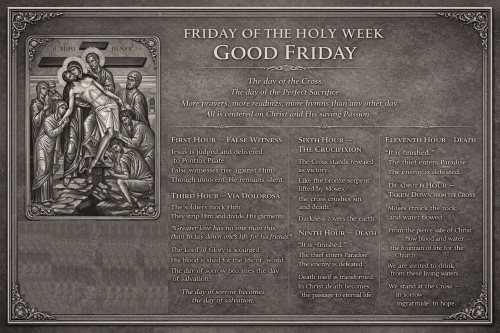 FRIDAY OF THE HOLY WEEK
GOOD FRIDAY
The day of the Cross.
The day of the Perfect Sacrifice.
More prayers, more readings, more hymns than any other day.
All is centered on Christ and His saving Passion.
FIRST HOUR — FALSE WITNESS
Jesus is judged and delivered
to Pontius Pilate
False witnesses rise against Him
Though innocent He remains silent.
THIRD HOUR — VIA DOLOROSA
The soldiers mock Him
They strip Him and divide His garments
"Greater love has no one than this,
than to lay down one's life for his friends"
The Lord of Glory is scourged
His blood is shed for the life of world
The day of sorrow becomes the day
of salvation.
The day of sorrow becomes
the day of salvation
SIXTH HOUR —
THE CRUCIFIXION
The Cross stands revealed
as victory.
Like the bronze serpent
lifted by Moses,
the cross crushes sin
and death.
Darkness covers the earth
NINTH HOUR — DEATH
"It is finished."
The thief enters Paradise
The enemy is defeated
Death itself is transformed.
In Christ death becomes
the passage to eternal life.
ELEVENTH HOUR – DEATH
"It is finished."
The thief enters Paradise
The enemy is defeated.
HOUR —
TAKEN DOWN FROM THE CROSS
Moses struck the rock,
and water flowed
From the pierce side of Christ
flow blood and water
the fountain of life for the
Church.
We are invited to drink
from these living waters
We stand at the Cross —
in sorrow
ingratitude, in hope.